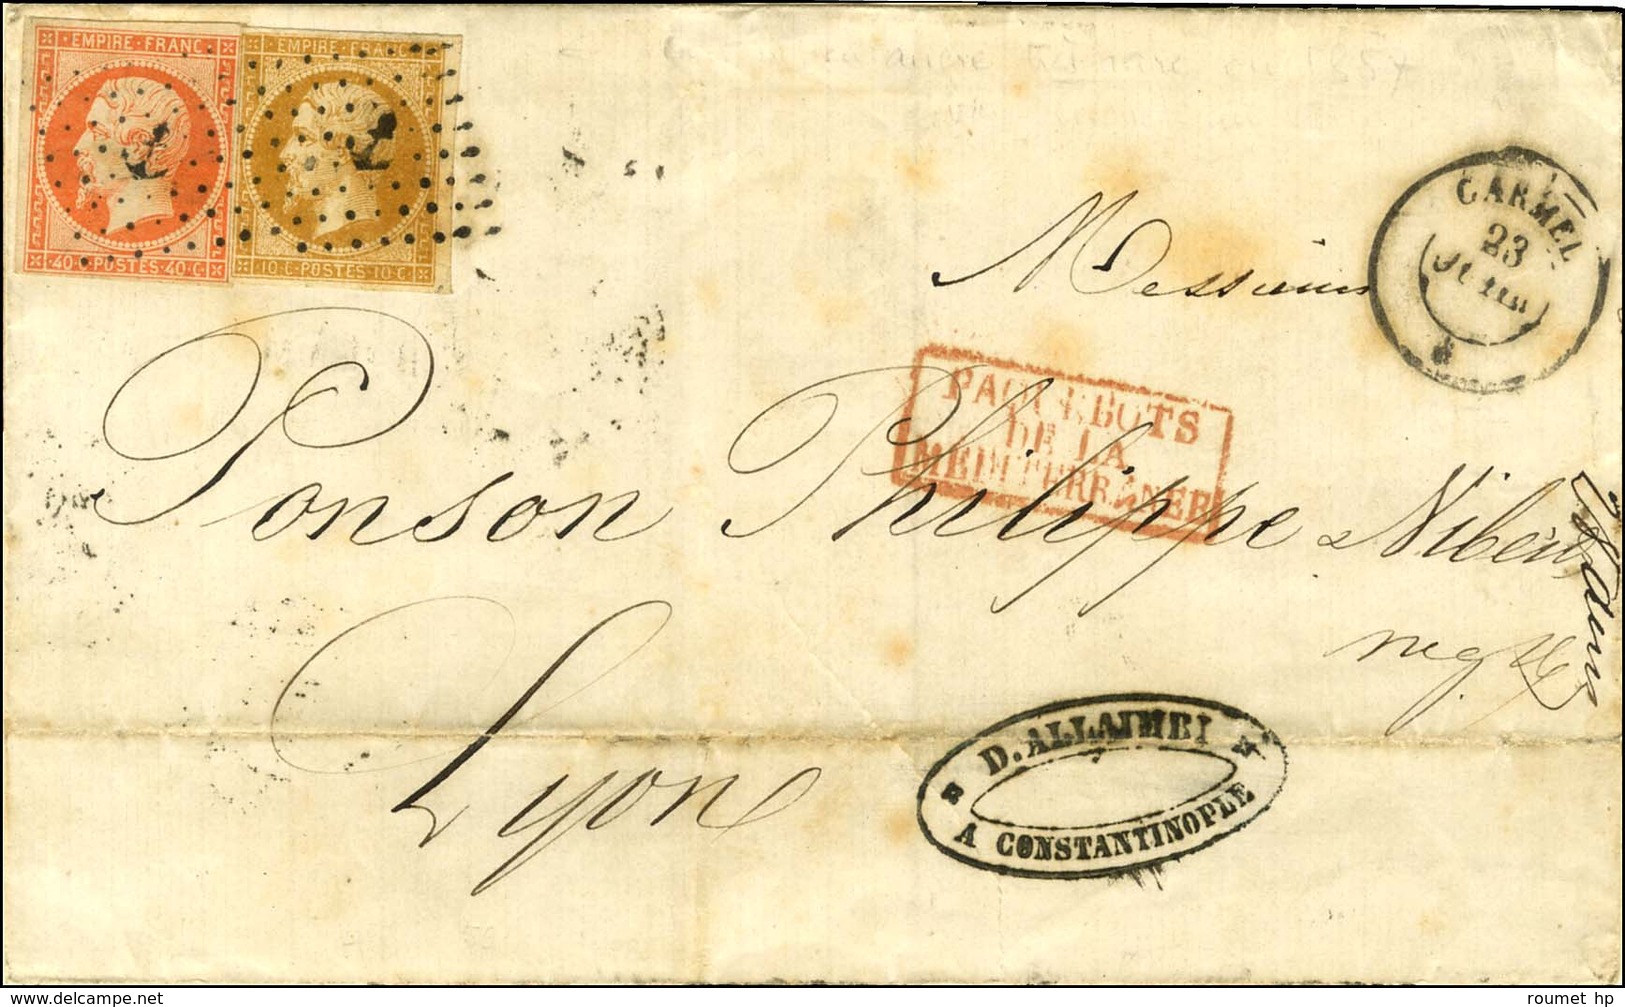 EMPIRE FRANC
EMPIRE FRANC
40·C·POSTES·40·C
10·C·POSTES·10·C
1857
CARMEL
23
Messieurs
PAQUEBOTS
DE LA
MEDITERRANEE
Ponson Philippe
Lyon
D. ALLAIMBI
A CONSTANTINOPLE
delcampe.net
roumet hp